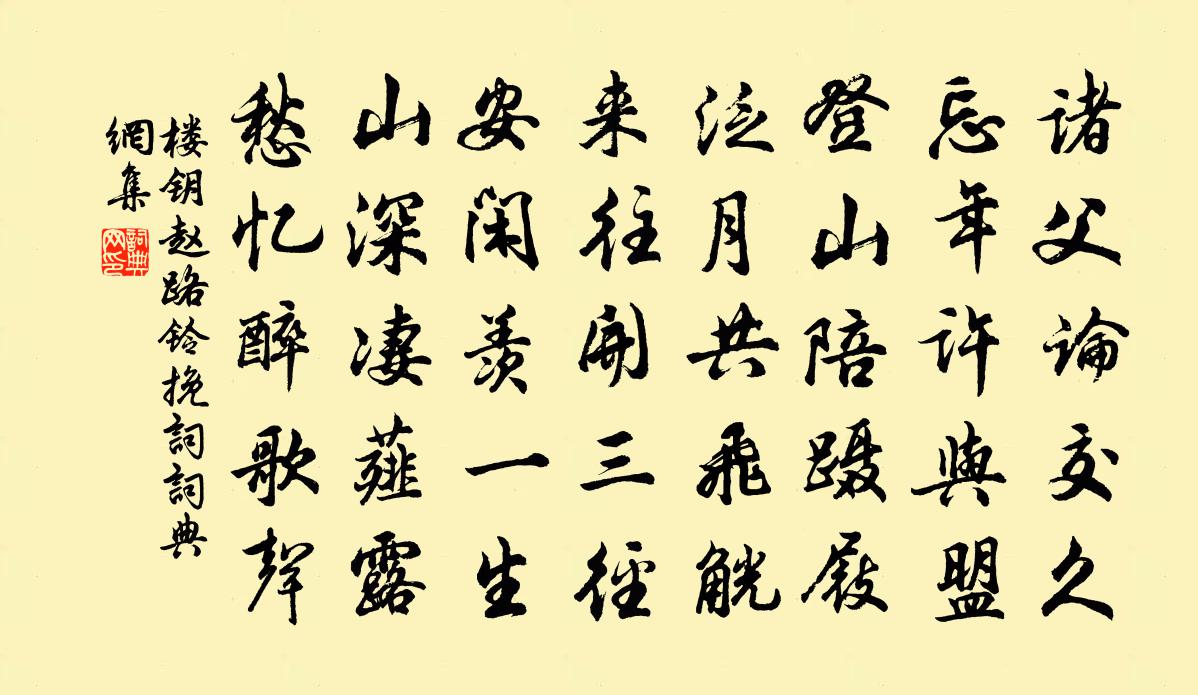 诸父論交久
忘年许與盟
登山陪蹑屐
泛月共飛觥
来往開三径
安闲羡一生
山深凄薤露
愁忆醉歌聲
楼钥赵路铃挽詞詞典
網集
詞典
网印